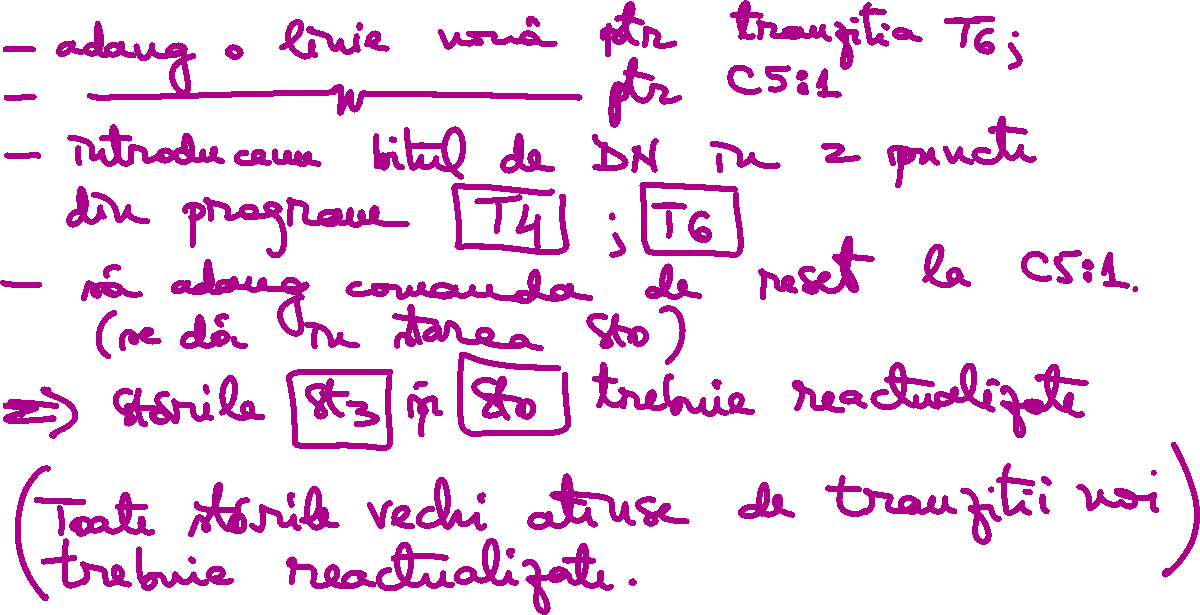 – adaug o linie nouă ptr tranziția T6;
– ————— " ————— ptr C5:1
– introducem bitul de DN în 2 puncte
din program T4 ; T6
– să adaug comanda de reset la C5:1.
(se dă în starea St0)
=> stările St3 și St0 trebuie reactualizate
(Toate stările vechi atinse de tranziții noi
trebuie reactualizate.)